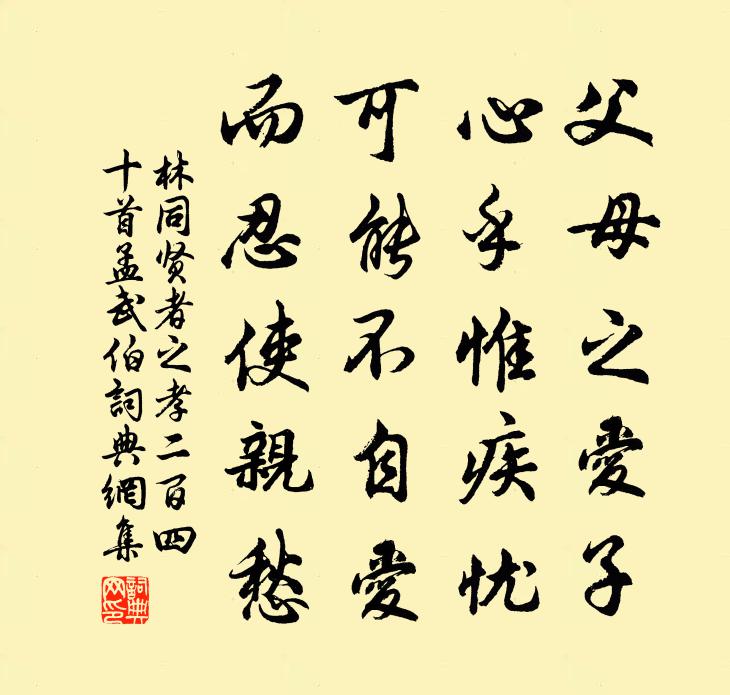 父母之愛子
心乎惟疾忧
可能不自愛
而忍使親愁
林同贤者之孝二百四
十首孟武伯詞典網集
詞典
网印